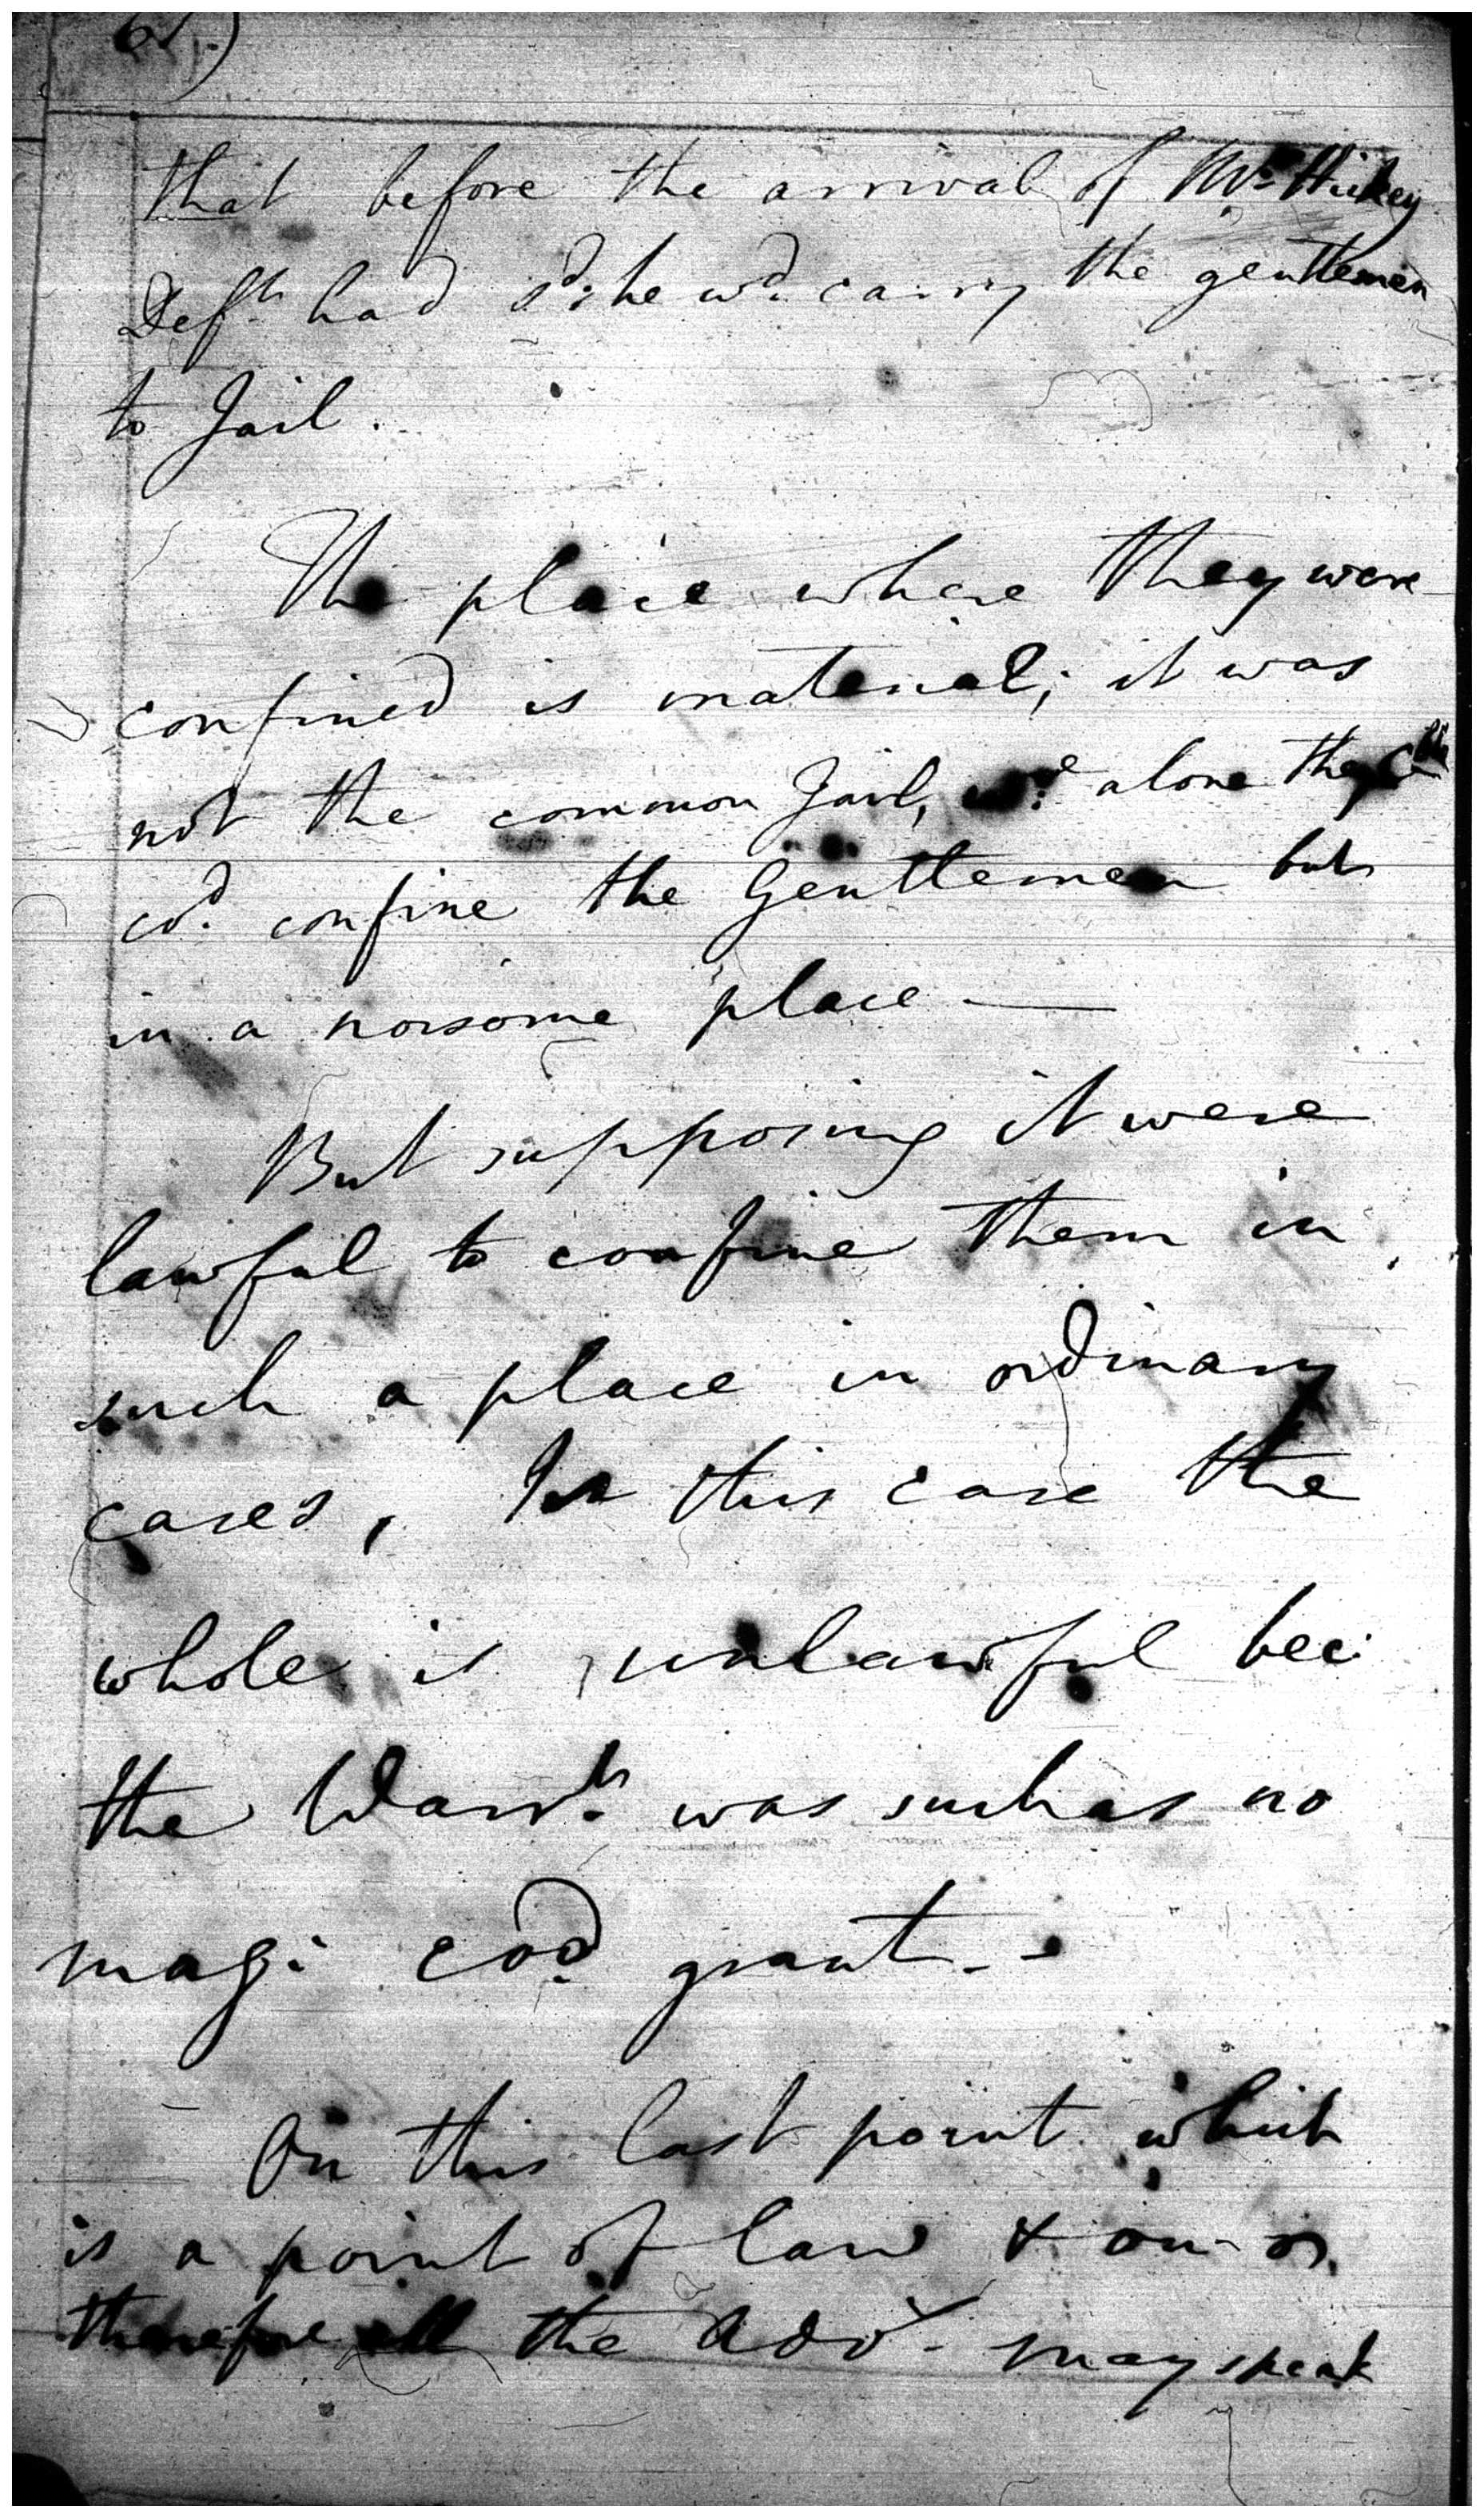 that before the arrival of Mr. Hickey
Deft. had sd. he wd. carry the gentlemen
to Jail.
The place where they were
confined is material; it was
not the common Jail, alone they
cod. confine the Gentlemen but
in a noisome place —
But supposing it were
lawful to confine them in
such a place in ordinary
cases, In this case the
whole is unlawful bec:
the Warrt. was such as no
mag: cod. grant --
On this last point which
is a point of law & on
therefore all the Adv. may speak